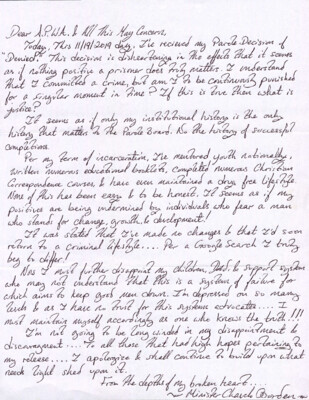 Dear A.P.W.A. & All This May Concern,
Today, This 11/19/2019 day, I've recieved my Parole Decision of
"Denied". This decision is disheartening in the effects that it seems
as if nothing positive a prisoner does truly matters. I understand
that I committed a crime, but am I to be continously punished
for a singular moment in time? If this is love then what is
justice?
It seems as if only my institutional history is the only
history that matters to the Parole Board. No the history of successful
completions.
Per my term of incarceration, I've mentored youth nationally,
written numerous educational booklets, completed numerous Christian
Correspondence courses & have even maintained a drug free lifestyle
None of this has been easy to be honest. It seems as if my
positives are being undermined by individuals who fear a man
who stands for change, growth & development!
It was stated that I've made no changes & that I'd soon
return to a Criminal lifestyle.... Per a Google Search I truly
beg to differ!
Now I must further disappoint my children, & support system
who may not understand that this is a system of failure for
which aims to keep good men down. I'm depressed on so many
levels & as I have no trust in this system advocates.... I
must maintain myself accordingly as one who knows the truth!!!
I'm not going to be long winded in my disappointment &
discouragement.... To all those that had high hopes pertaining to
my release.... I apologize & shall continue to build upon what
needs light shed upon it.
From the depths of my broken heart....
Minister Church